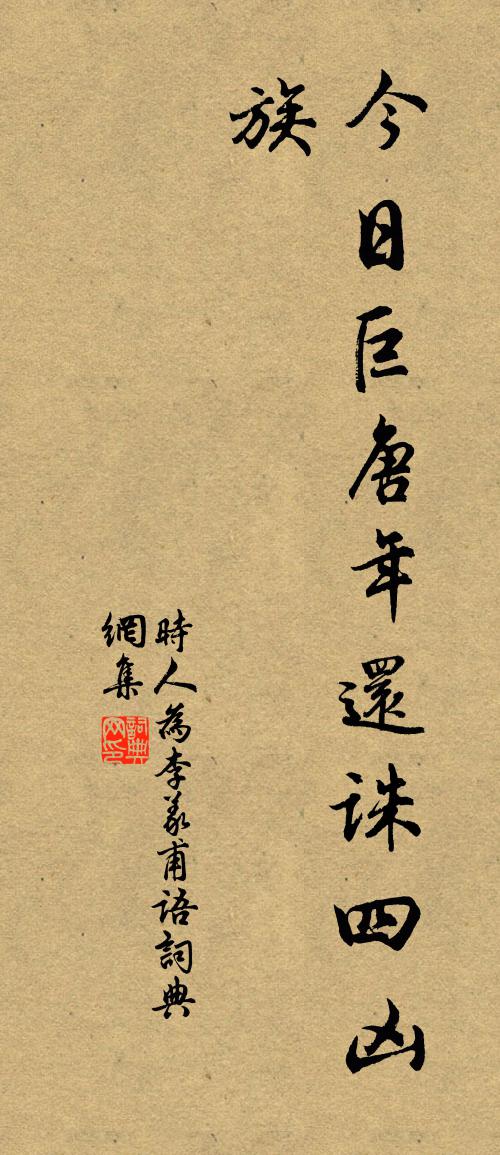 今日巨唐年還誅四凶
族
時人為李義甫語詞典
網集
詞典
网印